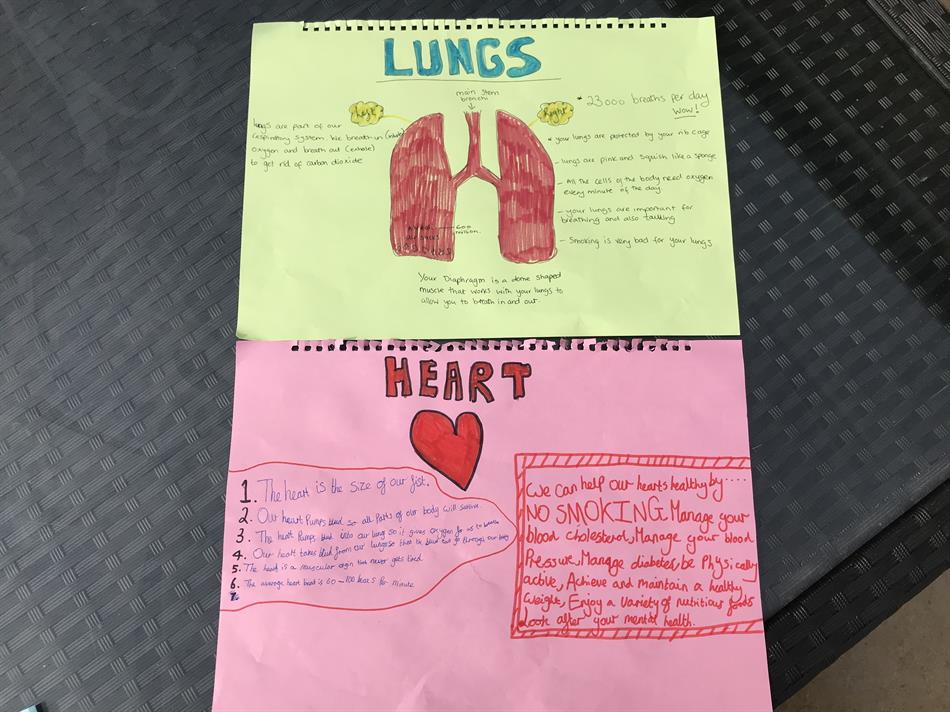 LUNGS
main stem
bronchi
Left
Right
* 23000 breaths per day
wow!
lungs are part of our
respiratory system. We breath in (inhale)
oxygen and breath out (exhale)
to get rid of carbon dioxide
* your lungs are protected by your rib cage
- lungs are pink and squish like a sponge
- All the cells of the body need oxygen
every minute of the day.
- your lungs are important for
breathing and also talking
- Smoking is very bad for your lungs
air sacks
600
million.
Your Diaphragm is a dome shaped
muscle that works with your lungs to
allow you to breath in and out.
HEART
1. The heart is the size of our fist.
2. Our heart Pumps blood so all Parts of our body will survive.
3. The heart Pumps blood into our lung so it gives oxygen for us to breathe
4. Our heart takes blood from our lungs so that the blood can go through our body
5. The heart is a muscular organ that never gets tired
6. The average heart beat is 60-100 beats Per minute
We can help our hearts healthy by ....
NO SMOKING Manage your
blood cholesterol, Manage your blood
Pressure, Manage diabetes, be Physically
active, Achieve and maintain a healthy
weight, Enjoy a variety of nutritious foods
Look after your mental health.